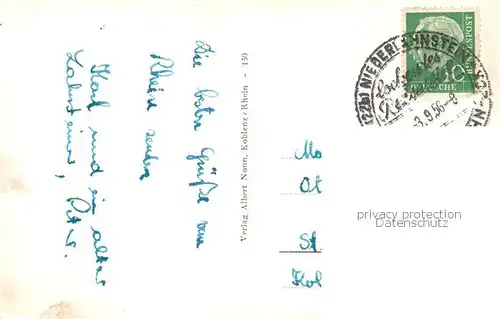 Die besten Grüße vom
Rhein senden
Karl und ein alter
Lahnsteiner, Peter.
Verlag Albert Nonn, Koblenz/Rhein - 150
DEUTSCHE
BUNDESPOST
10
(22b) NIEDERLAHNSTEIN
-3.9.56-8
Mo
Ot
St
Kob
privacy protection
VVVVVVVVVV